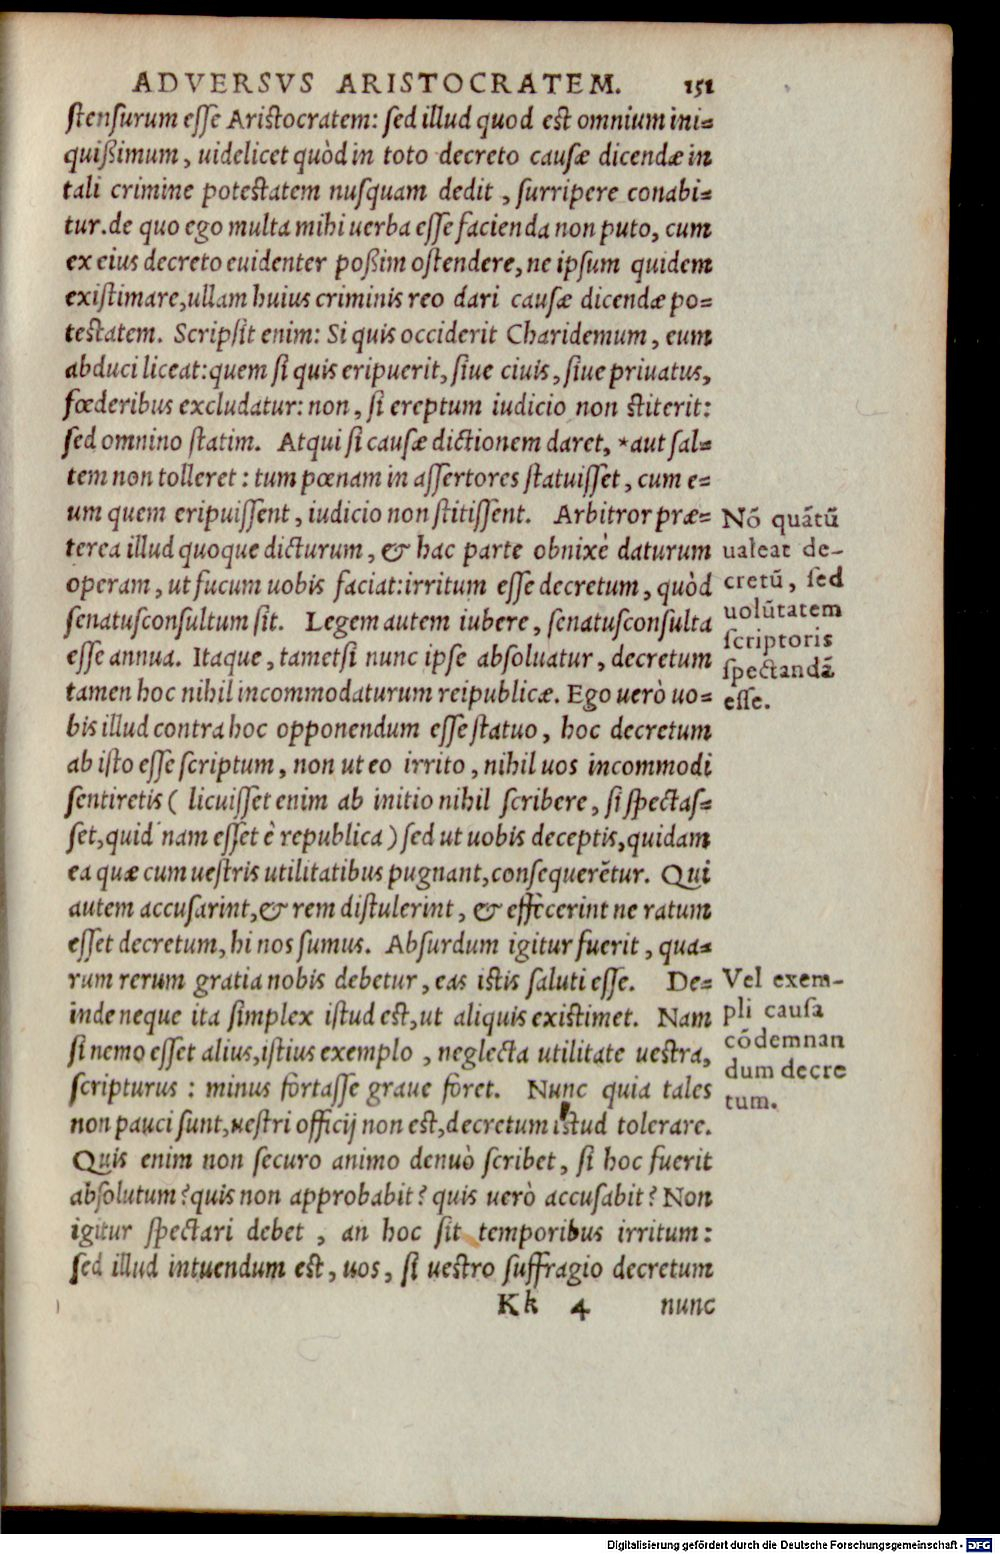 ADVERSVS ARISTOCRATEM. 151
stensurum esse Aristocratem: sed illud quod est omnium ini=
quißimum, uidelicet quòd in toto decreto causæ dicendæ in
tali crimine potestatem nusquam dedit, surripere conabi=
tur. de quo ego multa mihi uerba esse facienda non puto, cum
ex eius decreto euidenter poßim ostendere, ne ipsum quidem
existimare, ullam huius criminis reo dari causæ dicendæ po=
testatem. Scripsit enim: Si quis occiderit Charidemum, eum
abduci liceat: quem si quis eripuerit, siue ciuis, siue priuatus,
fœderibus excludatur: non, si ereptum iudicio non stiterit:
sed omnino statim. Atqui si causæ dictionem daret, *aut sal=
tem non tolleret: tum pœnam in assertores statuisset, cum e=
um quem eripuissent, iudicio non stitissent. Arbitror præ=
terea illud quoque dicturum, & hac parte obnixè daturum
operam, ut fucum uobis faciat: irritum esse decretum, quòd
senatusconsultum sit. Legem autem iubere, senatusconsulta
esse annua. Itaque, tametsi nunc ipse absoluatur, decretum
tamen hoc nihil incommodaturum reipublicæ. Ego uerò uo=
bis illud contra hoc opponendum esse statuo, hoc decretum
ab isto esse scriptum, non ut eo irrito, nihil uos incommodi
sentiretis (licuisset enim ab initio nihil scribere, si spectas=
set, quid nam esset è republica) sed ut uobis deceptis, quidam
ea quæ cum uestris utilitatibus pugnant, consequerẽtur. Qui
autem accusarint, & rem distulerint, & effecerint ne ratum
esset decretum, hi nos sumus. Absurdum igitur fuerit, qua=
rum rerum gratia nobis debetur, eas istis saluti esse. De=
inde neque ita simplex istud est, ut aliquis existimet. Nam
si nemo esset alius, istius exemplo, neglecta utilitate uestra,
scripturus: minus fortasse graue foret. Nunc quia tales
non pauci sunt, uestri officij non est, decretum istud tolerare.
Quis enim non securo animo denuò scribet, si hoc fuerit
absolutum? quis non approbabit? quis uerò accusabit? Non
igitur spectari debet, an hoc sit temporibus irritum:
sed illud intuendum est, uos, si uestro suffragio decretum
Kk 4 nunc
Nõ quãtũ
ualeat de-
cretũ, sed
uolũtatem
scriptoris
spectandã
esse.
Vel exem-
pli causa
cõdemnan
dum decre
tum.
Digitalisierung gefördert durch die Deutsche Forschungsgemeinschaft - DFG